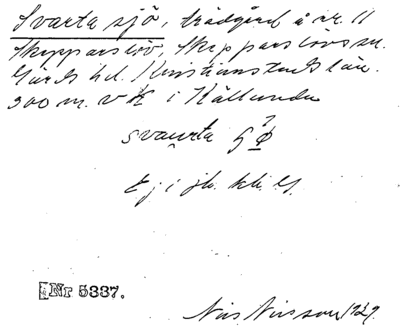 Svarta sjö, trädgård å nr. 11
Skepparslöv, Skepparslövs sn.
Gärds hd. Kristianstads län.
300 m. v K i Källunda
svaurta
Ej i jb. kli. 
Nr 5337.
Nils Nilsson 1929.